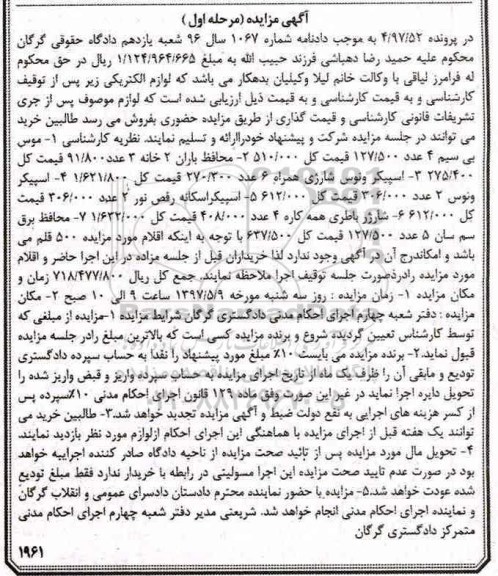 آگهی مزایده (مرحله اول)
در پرونده ۴/۹۷/۵۲ به موجب دادنامه شماره ۱۰۶۷ سال ۹۶ شعبه یازدهم دادگاه حقوقی گرگان
محکوم علیه حمید رضا دهباشی فرزند حبیب الله به مبلغ ۱/۱۲۴/۹۶۴/۶۶۵ ریال در حق محکوم
له فرامرز لیاقی با وکالت خانم لیلا وکیلیان بدهکار می باشد که لوازم الکتریکی زیر پس از توقیف
کارشناسی و به قیمت کارشناسی و به قیمت ذیل ارزیابی شده است که لوازم موصوف پس از جری
تشریفات قانونی کارشناسی و قیمت گذاری از طریق مزایده حضوری بفروش می رسد طالبین خرید
می توانند در جلسه مزایده شرکت و پیشنهاد خودراارائه و تسلیم نمایند. نظریه کارشناسی ۱- موس
بی سیم ۴ عدد ۱۲۷/۵۰۰ قیمت کل ۵۱۰/۰۰۰ ۲- محافظ باران ۲ خانه ۳ عدد ۹۱/۸۰۰ قیمت کل
۲۷۵/۴۰۰ ۳- اسپیکر ونوس شارژی همراه ۶ عدد ۲۷۰/۳۰۰ قیمت کل ۱/۶۲۱/۸۰۰ ۴- اسپیکر
ونوس ۲ عدد ۳۰۶/۰۰۰ قیمت کل ۶۱۲/۰۰۰ ۵- اسپیکراسکانه رقص نور ۲ عدد ۳۰۶/۰۰۰ قیمت
کل ۶۱۲/۰۰۰ ۶- شارژر باطری همه کاره ۴ عدد ۴۰۸/۰۰۰ قیمت کل ۱/۶۳۲/۰۰۰ ۷- محافظ برق
سم سان ۵ عدد ۱۲۷/۵۰۰ قیمت کل ۶۳۷/۵۰۰ با توجه به اینکه اقلام مورد مزایده ۵۰۰ قلم می
باشد و امکاندرج آن در آگهی وجود ندارد لذا خریداران قبل از جلسه مزاده در این اجرا حاضر و اقلام
مورد مزایده رادرذصورت جلسه توقیف اجرا ملاحظه نمایند. جمع کل ریال ۷۱۸/۴۷۷/۸۰۰ زمان و
مکان مزایده ۱- زمان مزایده : روز سه شنبه مورخه ۱۳۹۷/۵/۹ ساعت ۹ الی ۱۰ صبح ۲- مکان
مزایده : دفتر شعبه چهارم اجرای احکام مدنی دادگستری گرگان شرایط مزایده ۱-مزایده از مبلغی که
توسط کارشناس تعیین گردیده شروع و برنده مزایده کسی است که بالاترین مبلغ رادر جلسه مزایده
قبول نماید.۲- برنده مزایده می بایست ۱۰٪ مبلغ مورد پیشنهاد را نقدا به حساب سپرده دادگستری
تودیع و مابقی آن را ظرف یک ماه از تاریخ اجرای مزایده به حساب سپرده واریز و قبض واریز شده را
تحویل دایره اجرا نماید در غیر این صورت وفق ماده ۱۲۹ قانون اجرای احکام مدنی ۱۰٪سپرده پس
از کسر هزینه های اجرایی به نفع دولت ضبط و آگهی مزایده تجدید خواهد شد.۳- طالبین خرید می
توانند یک هفته قبل از اجرای مزایده با هماهنگی این اجرای احکام ازلوازم مورد نظر بازدید نمایند.
۴- تحویل مال مورد مزایده پس از تائید صحت مزایده از ناحیه دادگاه صادر کننده اجرائیه خواهد
بود در صورت عدم تایید صحت مزایده این اجرا مسولیتی در رابطه با خریدار ندارد فقط مبلغ تودیع
شده عودت خواهد شد.۵- مزایده با حضور نماینده محترم دادستان دادسرای عمومی و انقلاب گرگان
و نماینده اجرای احکام مدنی انجام خواهد شد. شریعتی مدیر دفتر شعبه چهارم اجرای احکام مدنی
متمرکز دادگستری گرگان
۱۹۶۱